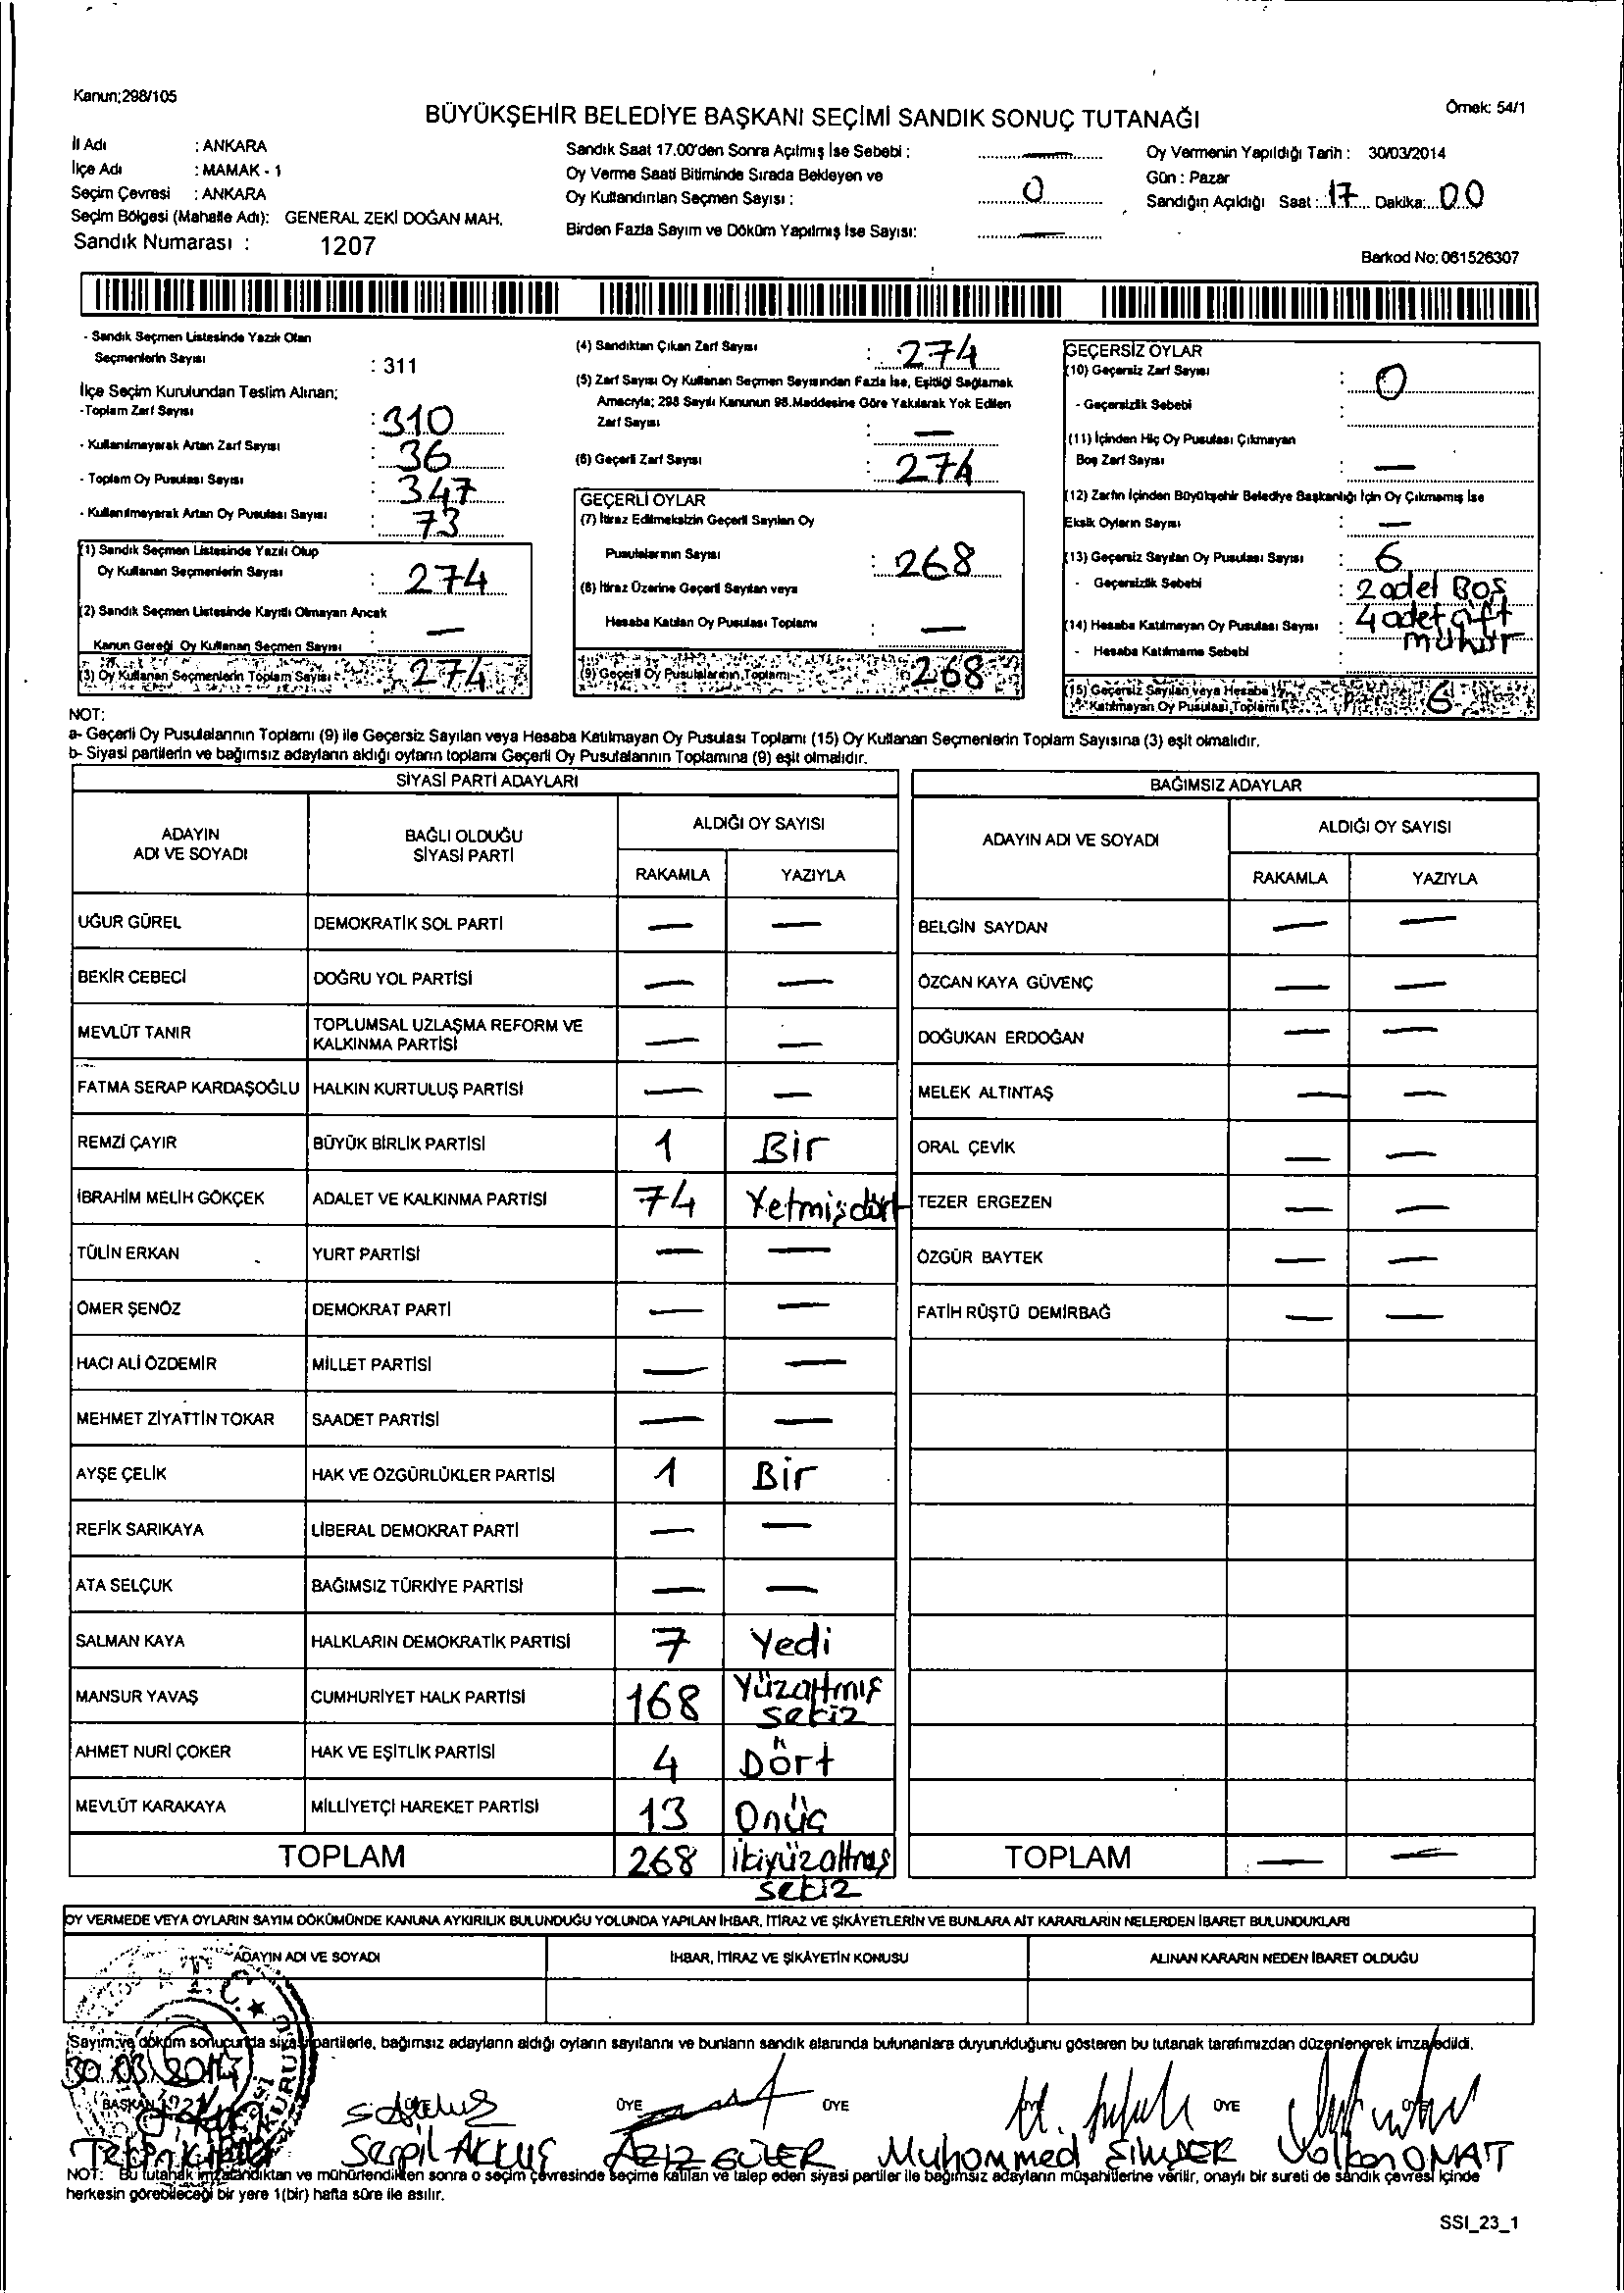 Kanun;298/105
BÜYÜKŞEHİR BELEDİYE BAŞKANI SEÇİMİ SANDIK SONUÇ TUTANAĞI
Örnek: 54/1
İl Adı : ANKARA
İlçe Adı : MAMAK - 1
Seçim Çevresi : ANKARA
Seçim Bölgesi (Mahalle Adı): GENERAL ZEKİ DOĞAN MAH.
Sandık Numarası : 1207
Sandık Saat 17.00'den Sonra Açılmış İse Sebebi : —
Oy Verme Saati Bitiminde Sırada Bekleyen ve
Oy Kullandırılan Seçmen Sayısı : 0
Birden Fazla Sayım ve Döküm Yapılmış İse Sayısı: —
Oy Vermenin Yapıldığı Tarih : 30/03/2014
Gün : Pazar
Sandığın Açıldığı Saat : 17 Dakika: 00
Barkod No: 061526307
- Sandık Seçmen Listesinde Yazılı Olan
Seçmenlerin Sayısı : 311
İlçe Seçim Kurulundan Teslim Alınan;
-Toplam Zarf Sayısı : 310
- Kullanılmayarak Artan Zarf Sayısı : 36
- Toplam Oy Pusulası Sayısı : 347
- Kullanılmayarak Artan Oy Pusulası Sayısı : 73
(1) Sandık Seçmen Listesinde Yazılı Olup
Oy Kullanan Seçmenlerin Sayısı : 274
(2) Sandık Seçmen Listesinde Kayıtlı Olmayan Ancak
Kanun Gereği Oy Kullanan Seçmen Sayısı : —
(3) Oy Kullanan Seçmenlerin Toplam Sayısı : 274
(4) Sandıktan Çıkan Zarf Sayısı : 274
(5) Zarf Sayısı Oy Kullanan Seçmen Sayısından Fazla İse, Eşitliği Sağlamak
Amacıyla; 298 Sayılı Kanunun 98.Maddesine Göre Yakılarak Yok Edilen
Zarf Sayısı : —
(6) Geçerli Zarf Sayısı : 274
GEÇERLİ OYLAR
(7) İtiraz Edilmeksizin Geçerli Sayılan Oy
Pusulalarının Sayısı : 268
(8) İtiraz Üzerine Geçerli Sayılan veya
Hesaba Katılan Oy Pusulası Toplamı : —
(9) Geçerli Oy Pusulalarının Toplamı : 268
GEÇERSİZ OYLAR
(10) Geçersiz Zarf Sayısı : 0
- Geçersizlik Sebebi :
(11) İçinden Hiç Oy Pusulası Çıkmayan
Boş Zarf Sayısı : —
(12) Zarfın İçinden Büyükşehir Belediye Başkanlığı İçin Oy Çıkmamış İse
Eksik Oyların Sayısı : —
(13) Geçersiz Sayılan Oy Pusulası Sayısı : 6
- Geçersizlik Sebebi : 2 adet Boş
(14) Hesaba Katılmayan Oy Pusulası Sayısı : 4 adet çift
mühür
- Hesaba Katılmama Sebebi :
(15) Geçersiz Sayılan veya Hesaba
Katılmayan Oy Pusulası Toplamı : 6
NOT:
a- Geçerli Oy Pusulalarının Toplamı (9) ile Geçersiz Sayılan veya Hesaba Katılmayan Oy Pusulası Toplamı (15) Oy Kullanan Seçmenlerin Toplam Sayısına (3) eşit olmalıdır.
b- Siyasi partilerin ve bağımsız adayların aldığı oyların toplamı Geçerli Oy Pusulalarının Toplamına (9) eşit olmalıdır.
SİYASİ PARTİ ADAYLARI
ADAYIN ADI VE SOYADI BAĞLI OLDUĞU SİYASİ PARTİ ALDIĞI OY SAYISI
RAKAMLA YAZIYLA
UĞUR GÜREL DEMOKRATİK SOL PARTİ — —
BEKİR CEBECİ DOĞRU YOL PARTİSİ — —
MEVLÜT TANIR TOPLUMSAL UZLAŞMA REFORM VE KALKINMA PARTİSİ — —
FATMA SERAP KARDAŞOĞLU HALKIN KURTULUŞ PARTİSİ — —
REMZİ ÇAYIR BÜYÜK BİRLİK PARTİSİ 1 Bir
İBRAHİM MELİH GÖKÇEK ADALET VE KALKINMA PARTİSİ 74 Yetmişdört
TÜLİN ERKAN YURT PARTİSİ — —
ÖMER ŞENÖZ DEMOKRAT PARTİ — —
HACI ALİ ÖZDEMİR MİLLET PARTİSİ — —
MEHMET ZİYATTİN TOKAR SAADET PARTİSİ — —
AYŞE ÇELİK HAK VE ÖZGÜRLÜKLER PARTİSİ 1 Bir
REFİK SARIKAYA LİBERAL DEMOKRAT PARTİ — —
ATA SELÇUK BAĞIMSIZ TÜRKİYE PARTİSİ — —
SALMAN KAYA HALKLARIN DEMOKRATİK PARTİSİ 7 Yedi
MANSUR YAVAŞ CUMHURİYET HALK PARTİSİ 168 Yüzaltmış sekiz
AHMET NURİ ÇOKER HAK VE EŞİTLİK PARTİSİ 4 Dört
MEVLÜT KARAKAYA MİLLİYETÇİ HAREKET PARTİSİ 13 Onüç
TOPLAM 268 ikiyüzaltmış sekiz
BAĞIMSIZ ADAYLAR
ADAYIN ADI VE SOYADI ALDIĞI OY SAYISI
RAKAMLA YAZIYLA
BELGİN SAYDAN — —
ÖZCAN KAYA GÜVENÇ — —
DOĞUKAN ERDOĞAN — —
MELEK ALTINTAŞ — —
ORAL ÇEVİK — —
TEZER ERGEZEN — —
ÖZGÜR BAYTEK — —
FATİH RÜŞTÜ DEMİRBAĞ — —
TOPLAM — —
OY VERMEDE VEYA OYLARIN SAYIM DÖKÜMÜNDE KANUNA AYKIRILIK BULUNDUĞU YOLUNDA YAPILAN İHBAR, İTİRAZ VE ŞİKÂYETLERİN VE BUNLARA AİT KARARLARIN NELERDEN İBARET BULUNDUKLARI
ADAYIN ADI VE SOYADI İHBAR, İTİRAZ VE ŞİKÂYETİN KONUSU ALINAN KARARIN NEDEN İBARET OLDUĞU
Sayım ve döküm sonucunda siyasi partilerle, bağımsız adayların aldığı oyların sayılarını ve bunların sandık alanında bulunanlara duyurulduğunu gösteren bu tutanak tarafımızdan düzenlenerek imza edildi.
30.03.2014
BAŞKAN ÜYE ÜYE ÜYE
Serpil AKKUŞ AZİZ GÜLER Muhammed Volkan ONAT
NOT: Bu tutanak imzalandıktan ve mühürlendikten sonra o seçim çevresinde seçime katılan ve talep eden siyasi partiler ile bağımsız adayların müşahitlerine verilir, onaylı bir sureti de sandık çevresi içinde
herkesin görebileceği bir yere 1(bir) hafta süre ile asılır.
SSI_23_1